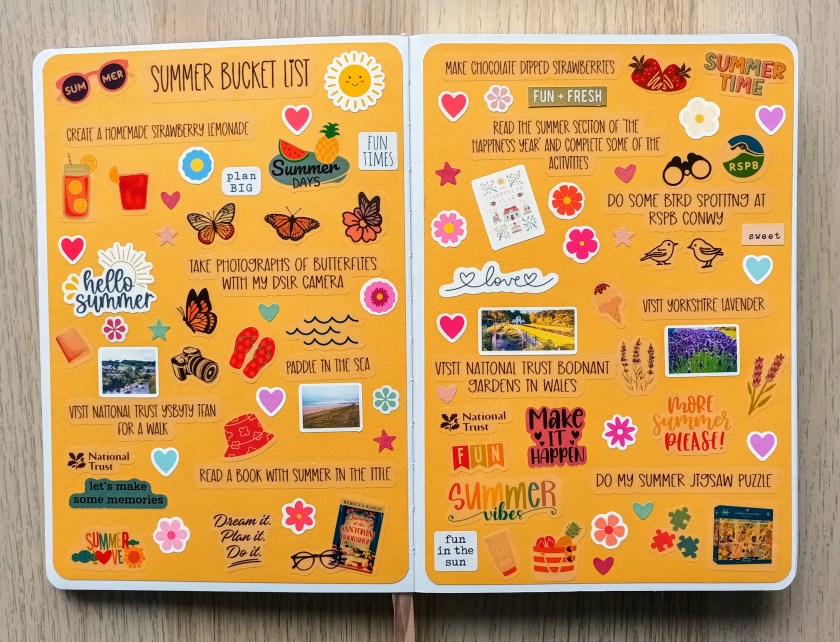 SUMMER
SUMMER BUCKET LIST
CREATE A HOMEMADE STRAWBERRY LEMONADE
plan
BIG
Summer
DAYS
FUN
TIMES
hello
summer
TAKE PHOTOGRAPHS OF BUTTERFLIES
WITH MY DSLR CAMERA
PADDLE IN THE SEA
VISIT NATIONAL TRUST YSBYTY IFAN
FOR A WALK
National
Trust
let's make
some memories
READ A BOOK WITH SUMMER IN THE TITLE
SUMMER
LOVE
Dream it.
Plan it.
Do it.
REBECCA RAISIN
SANTORINI
BOOKSHOP
MAKE CHOCOLATE DIPPED STRAWBERRIES
SUMMER
TIME
FUN + FRESH
READ THE SUMMER SECTION OF 'THE
HAPPINESS YEAR' AND COMPLETE SOME OF THE
ACTIVITIES
RSPB
HAPPINESS
YEAR
DO SOME BIRD SPOTTING AT
RSPB CONWY
sweet
love
VISIT YORKSHIRE LAVENDER
VISIT NATIONAL TRUST BODNANT
GARDENS IN WALES
National
Trust
Make
IT
HAPPEN
MORE
summer
PLEASE!
FUN
SUMMER
vibes
DO MY SUMMER JIGSAW PUZZLE
fun
in the
sun